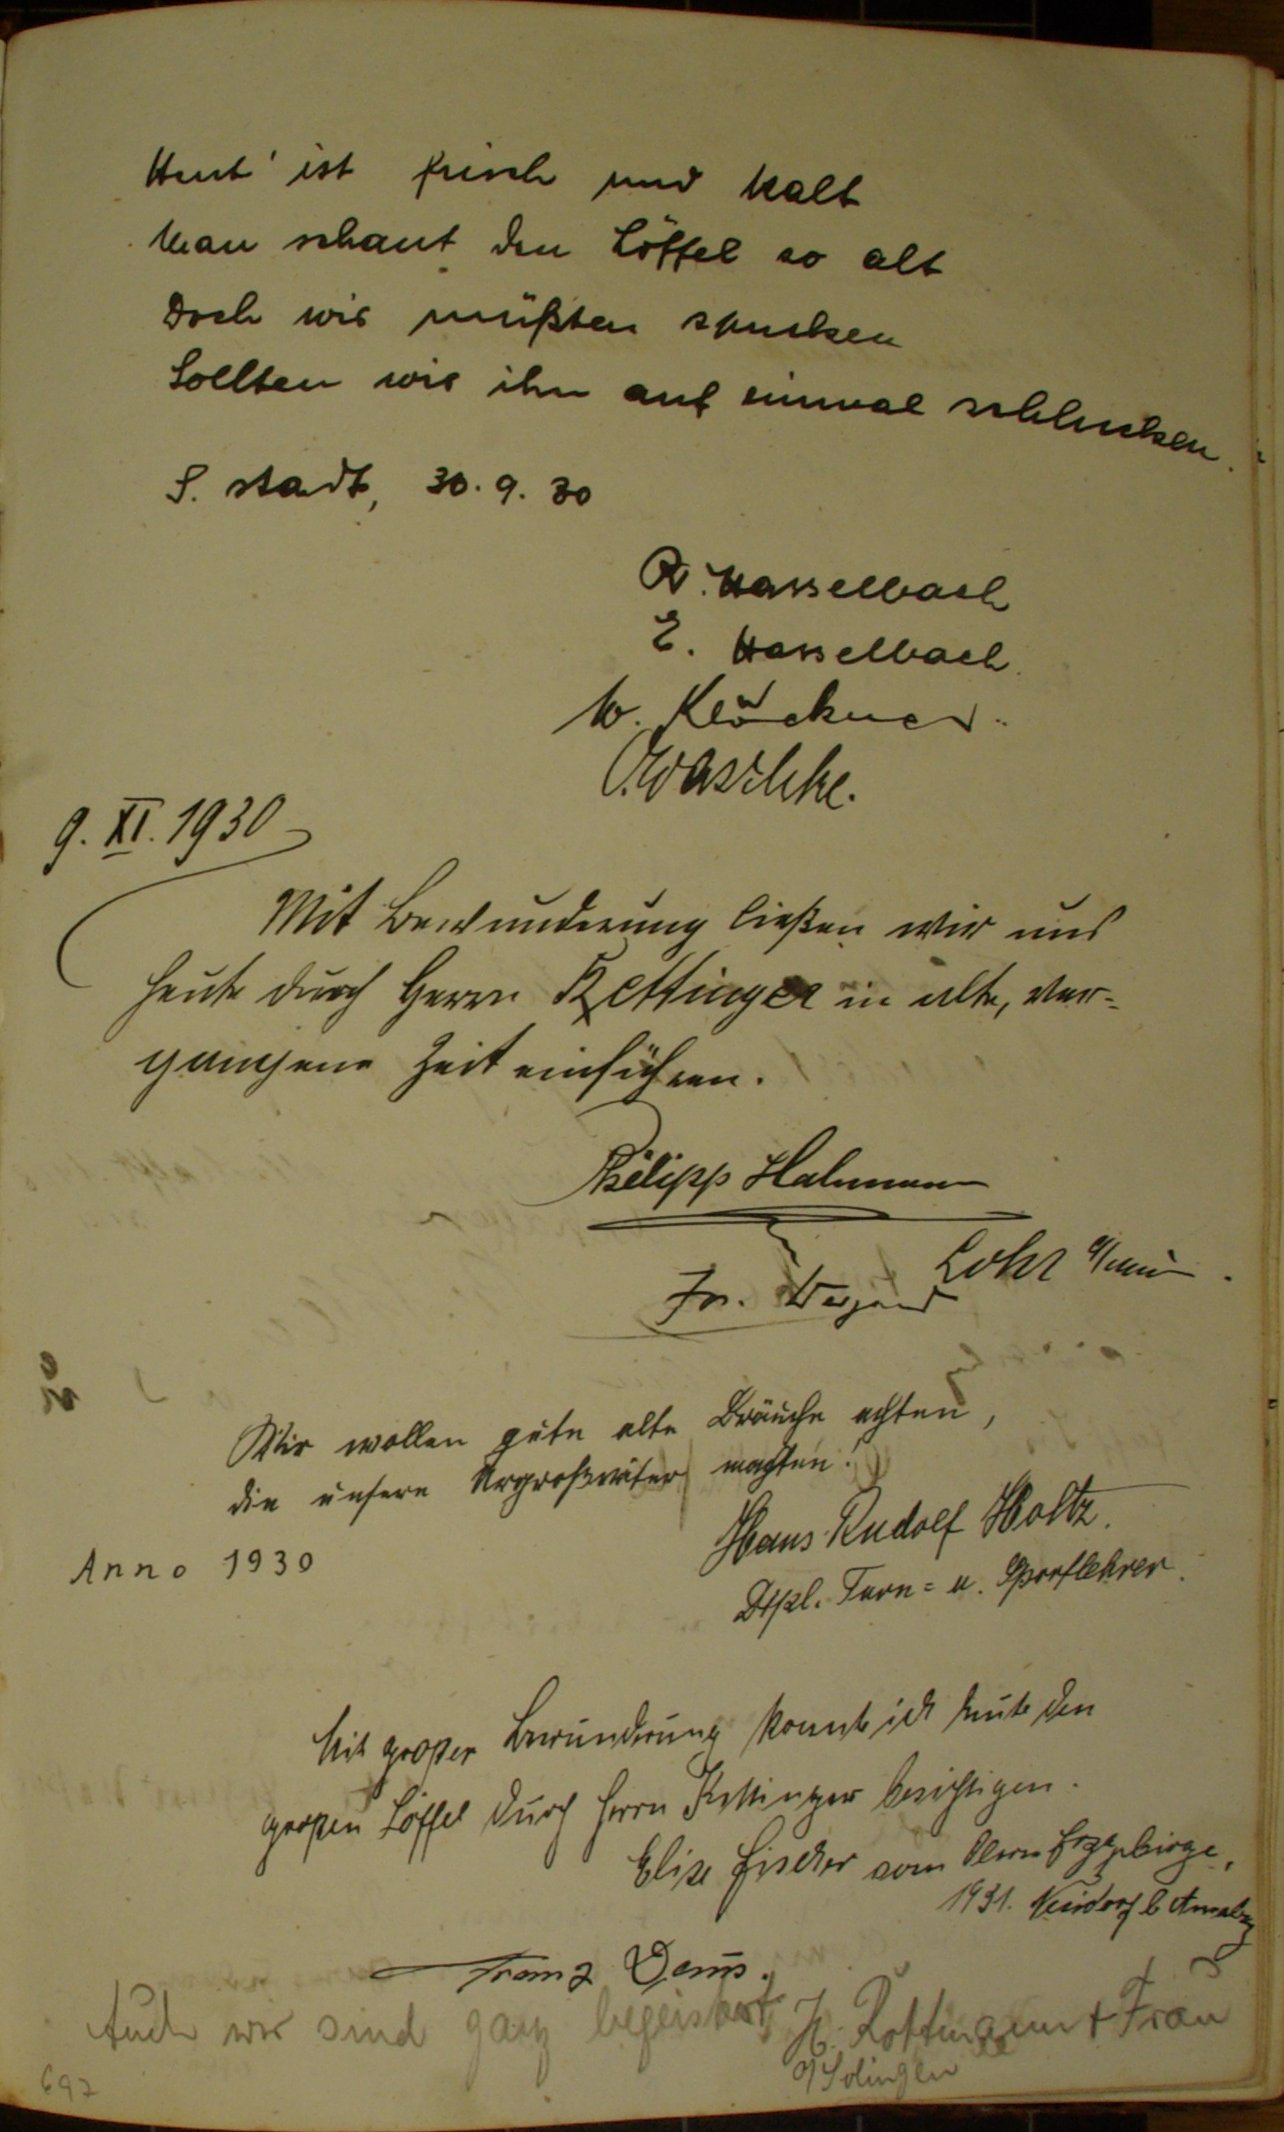 Heut' ist frisch und kalt
Man schaut den Löffel so alt
Doch wir müßten spucken
Sollten wir ihn auf einmal schlucken.
S. stadt, 30. 9. 30
R. Hasselbach
E. Hasselbach
W. Klöckner
O. Waschke.
9. XI. 1930
Mit Bewunderung ließen wir uns
heute durch Herrn Kettinger in alte, ver-
gangene Zeit einführen.
Philipp Hahmann
Lohr a/Main.
Fr. Wegand
Wir wollen gute alte Bräuche achten,
die unsere Urgroßväter machten!
Hans Rudolf Holtz.
Anno 1930
Dipl. Turn= u. Sportlehrer.
Mit großer Bewunderung konnte ich heute den
großen Löffel durch Herrn Kettinger besichtigen.
Elise Fischer vom Obern Erzgebirge,
1931. Neudorf b Annabg
Franz
Auch wir sind ganz begeistert H. Rottmann + Frau
a/Solingen
697